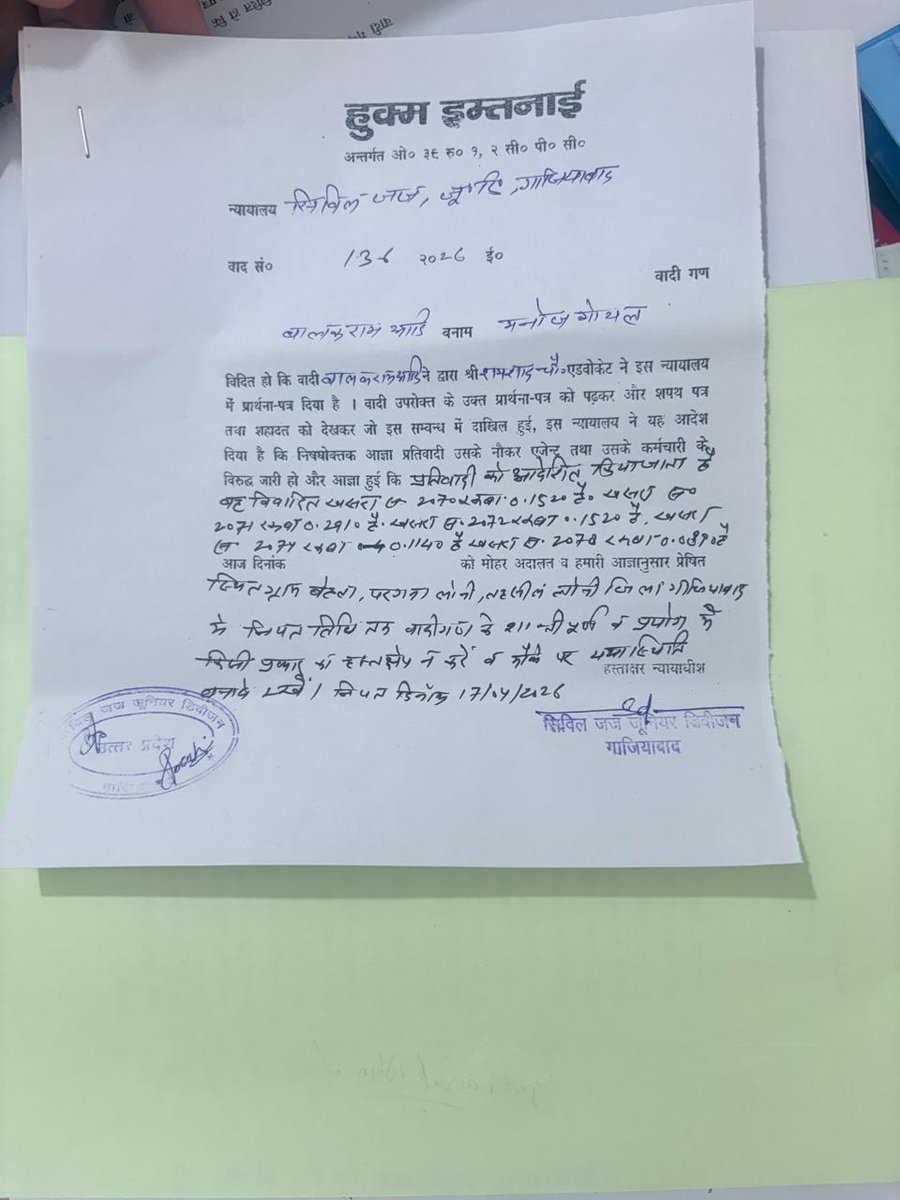 हुक्म इम्तनाई
अन्तर्गत ओ० ३९ रु० १, २ सी० पी० सी०
न्यायालय सिविल जज, जू०डि०, गाजियाबाद
वाद सं० 136 २०२6 ई०
वादी गण
बालकराम आदि बनाम मनोज गोयल
विदित हो कि वादी बालकराम आदि ने द्वारा श्री चौ० एडवोकेट ने इस न्यायालय
में प्रार्थना-पत्र दिया है । वादी उपरोक्त के उक्त प्रार्थना-पत्र को पढ़कर और शपथ पत्र
तथा शहादत को देखकर जो इस सम्वन्ध में दाखिल हुई, इस न्यायालय ने यह आदेश
दिया है कि निषघोक्तक आज्ञा प्रतिवादी उसके नोकर एजेन्ट तथा उसके कर्मचारी के
विरुद्ध जारी हो और आज्ञा हुई कि प्रतिवादी को आदेशित किया जाता है
वह विवादित खसरा न० 2070 रकबा 0.1520 है० खसरा न०
2071 रकबा 0.2910 है. खसरा न. 2072 रकबा 0.1520 है, खसरा
न० 2074 रकबा 0.1140 है खसरा न. 2078 रकबा है
आज दिनांक को मोहर अदालत व हमारी आज्ञानुसार प्रेषित
स्थित ग्राम बेहटा, परगना लोनी, तहसील लोनी जिला गाजियाबाद
मे नियत तिथि तक वादीगण के शान्तीपूर्ण व प्रयोग मे
किसी प्रकार का हस्तक्षेप न करें व मौके पर यथास्थिति
हस्ताक्षर न्यायाधीश
बनाये रखें। नियत दिनाँक 17/04/2026
Sd
सिविल जज जूनियर डिवीजन
गाजियाबाद
सिविल जज जूनियर डिवीजन
उत्तर प्रदेश